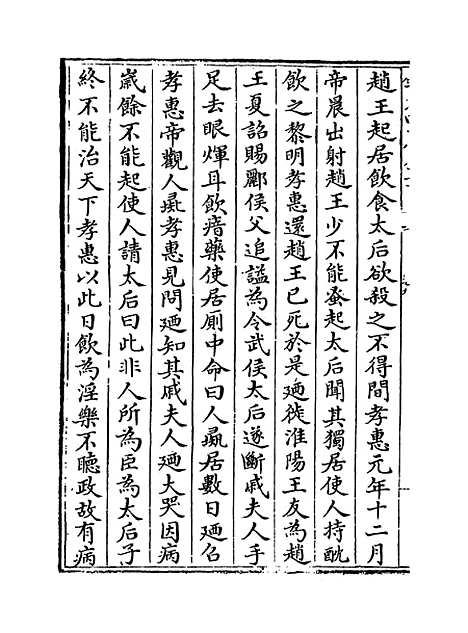 趙王起居飲食太后欲殺之不得間孝惠元年十二月
帝晨出射趙王少不能蚤起太后聞其獨居使人持酖
飲之黎明孝惠還趙王已死於是廼徙淮陽王友為趙
王夏詔賜酈侯父追諡為令武侯太后遂斷戚夫人手
足去眼煇耳飲瘖藥使居厠中命曰人彘居數日廼召
孝惠帝觀人彘孝惠見問廼知其戚夫人廼大哭因病
歲餘不能起使人請太后曰此非人所為臣為太后子
終不能治天下孝惠以此日飲為淫樂不聽政故有病